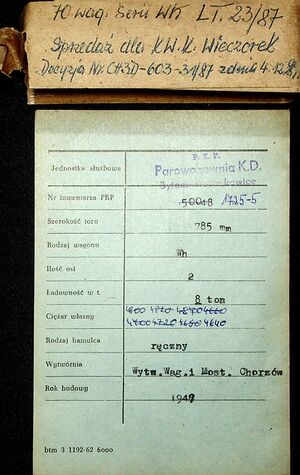 70 wag. Serii Wh LT. 23/87
Sprzedaż dla K.W.K. Wieczorek
Decyzja Nr. CH3D-603-31/87 z dnia 4.12.87
Jednostka służbowa P. K. P.
Parowozownia K.D.
Bytom-Karb
Nr inwentarza PKP 50018 1725-5
Szerokość toru 785 mm
Rodzaj wagonu Wh
Ilość osi 2
Ładowność w t. 8 ton
Ciężar własny 4800 4720 4840 4660
4700 4720 4650 4640
Rodzaj hamulca ręczny
Wytwórnia Wytw.Wag.i Most. Chorzów
Rok budowy 1947
btm 3 1192-62 6000